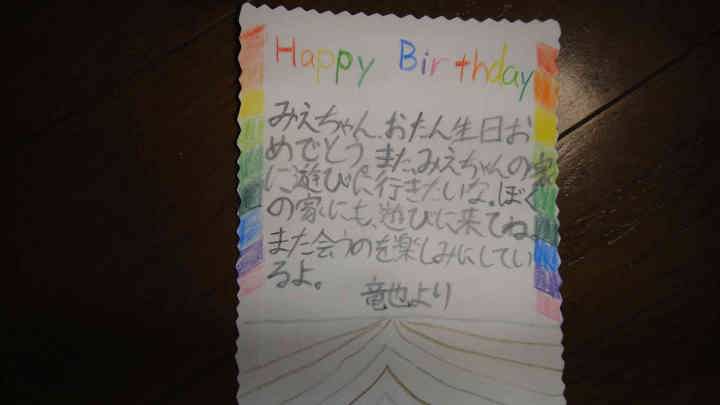 Happy Birthday
みえちゃん、おたん生日お
めでとう。また、みえちゃんの家
に遊びに行きたいな。ぼく
の家にも、遊びに来てね。
また会うのを楽しみにしてい
るよ。
竜也より